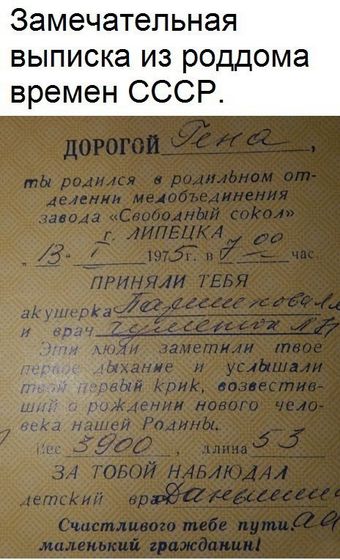 Замечательная
выписка из роддома
времен СССР.
ДОРОГОЙ Гена,
ты родился в родильном от-
делении медобъединения
завода «Свободный сокол»
г. ЛИПЕЦКА
13. I 1975г. в 7 00 час
ПРИНЯЛИ ТЕБЯ
акушерка
и врач
Эти люди заметили твое
первое дыхание и услышали
твой первый крик, возвестив-
ший о рождении нового чело-
века нашей Родины.
Вес 3900, длина 53
ЗА ТОБОЙ НАБЛЮДАЛ
детский врач
Счастливого тебе пути,
маленький гражданин!